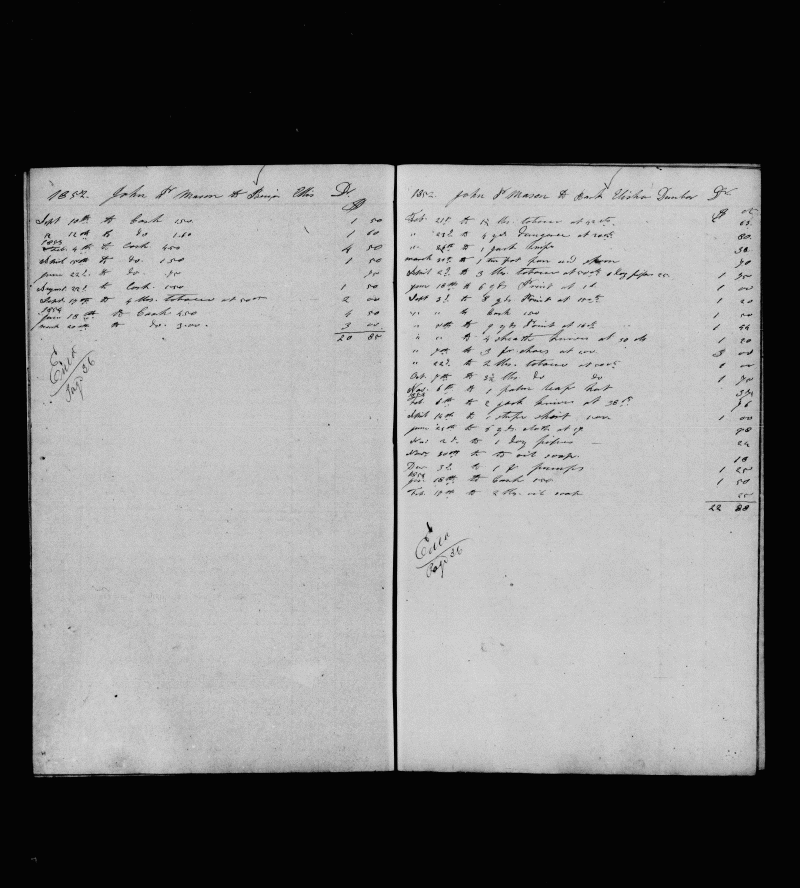 1852. John F Mason to Benja Ellis Dr
$
Sept 10th to Cash 150 1 50
" 12th to Do 1.60 1 60
1853
Feb. 4th to Cash 450 4 50
April 15th to Do. 150 1 50
June 22d to Do. 75 75
August 22d to Cash 150 1 50
Sept. 17th to 4 lbs. tobacco at 50cts 2 00
1854
Jan 18th to Cash 450 4 50
March 20th to Do. 3.00. 3 00
20 85
Ent'd
Page 36
1852 John F Mason to Bark Elisha Dunbar Dr.
$ cts
Feb. to lbs. tobacco at
" 23d to 4 yds Dungaree at 20cts 80
" to 1 jack knife
March to 1 tin pot pan and spoon 70
April 2d to 3 lbs. tobacco at 50cts pipes 1
June 16th to 6 yds Print at 1 00
Sept 3d to 8 yds Print at 15cts 1 20
" " to Cash 150 1 50
" to 9 yds Print at 16cts 1 44
" " to 4 sheath knives at 30 do 1 20
" 7th to 3 pr shoes at 100. 3 00
" 22d to 2 lbs. tobacco at 50cts 1 00
Oct. 7th to 3½ lbs Do Do 1 75
Nov. 6th to 1 palm leaf hat
1853
Feb 6th to 2 jack knives at 38cts 76
April 14th to 1 stripe shirt 100 1 00
June to yds. cloth at 98
Nov 2d to 1 Doz pipes — 24
Nov. 20th to oil soap. 18
Dec 3d to 1 pr pumps 1 25
1854
Jan. 18th to Cash 150 1 50
Feb. 17th to 2 lbs. oil soap
22 88
Ent'd
Page 36